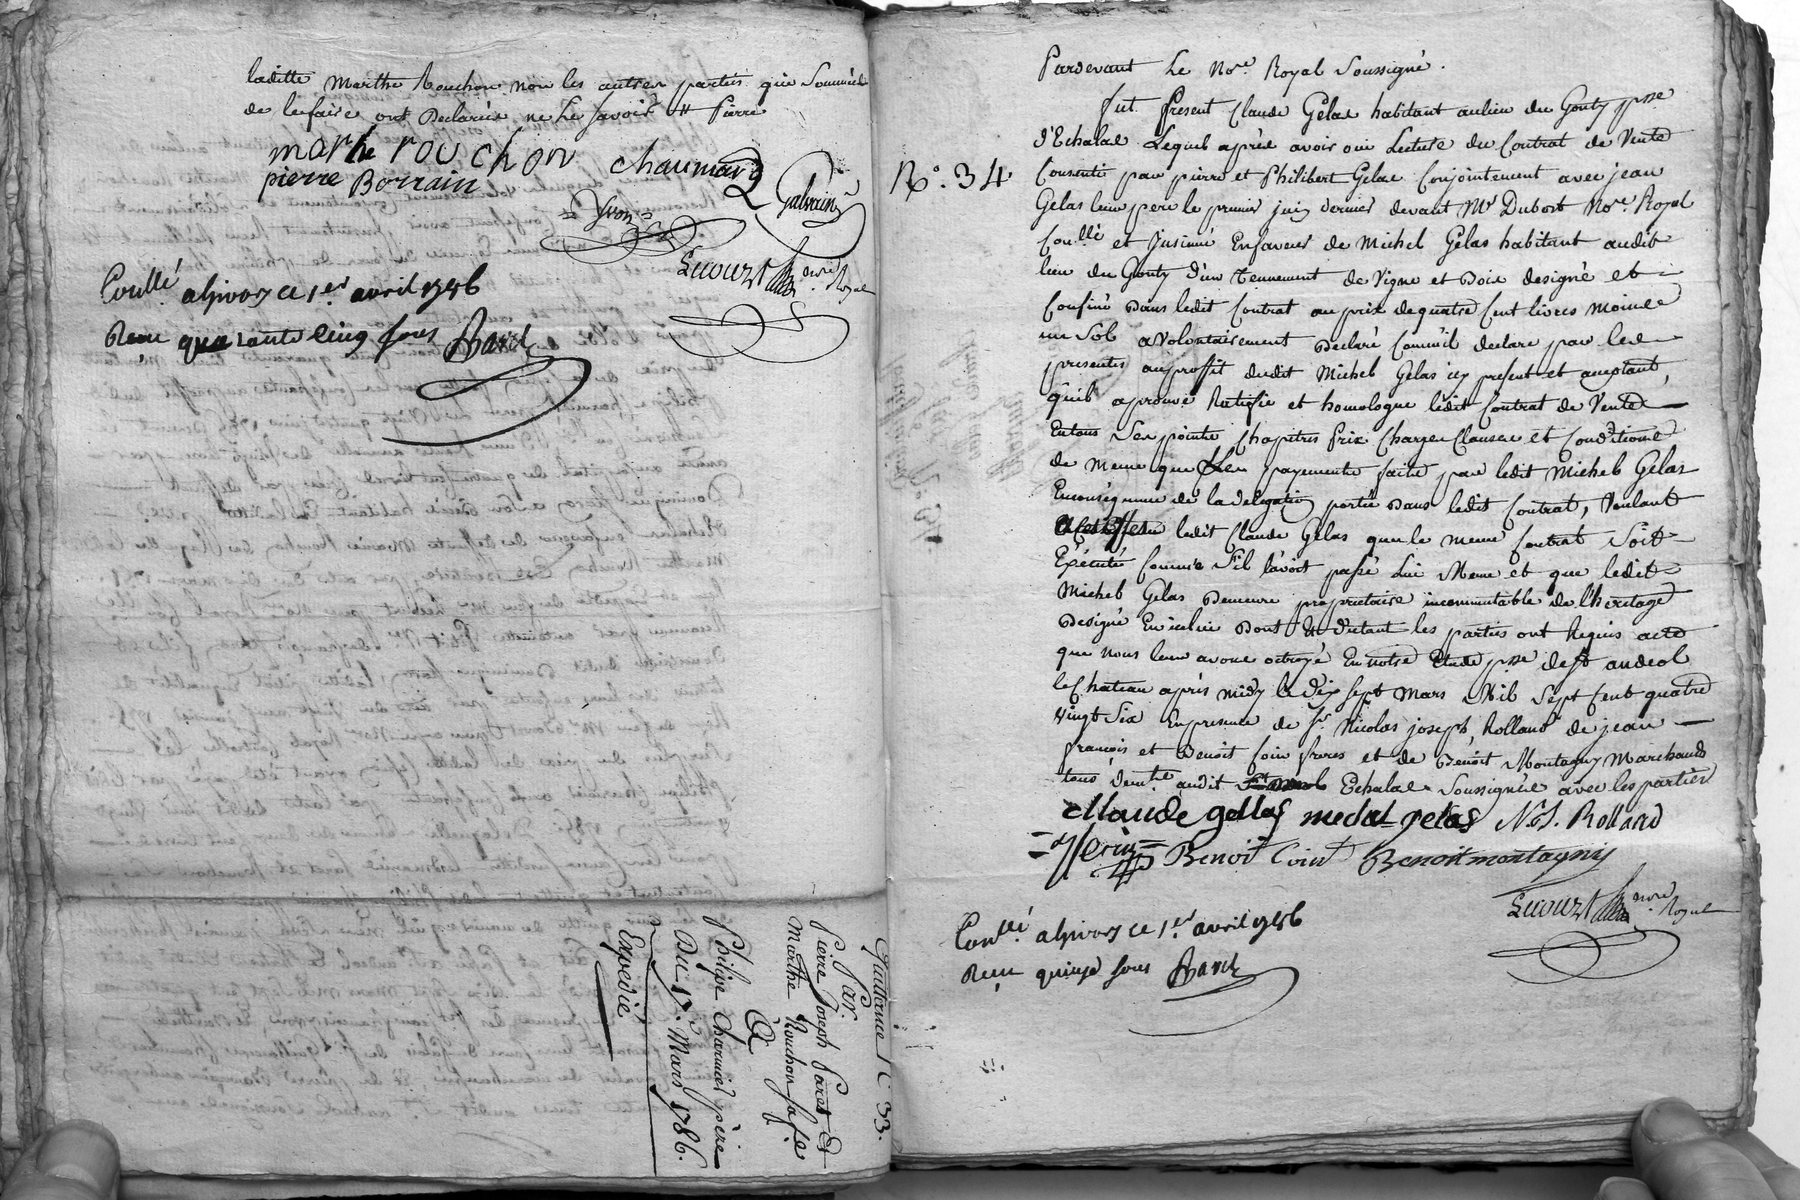 laditte Marthe Rouchon non les autres parties que Sommées
de le faire ont Déclarées ne Le Savoir // Pierre
marthe rouchon chaumard
pierre Borrain
=Yvon= Galvain
Lecourt noire Royal
Conllé a Givors ce 1er avril 1786
Reçu quarante cinq sous
Quittance N° 33.
Par
Pierre Joseph Paret Et
Marthe Rouchon sa fe
A
Philipe Charmet père
Du 17e Mars 1786.
Expédié
Pardevant Le Nore Royal Soussigné.
N°. 34.
fut Present Claude Gelas habitant au lieu du Gouty psse
d'Echalas Lequel après avoir oui Lecture du Contrat de Vente
Consenti par pierre et Philibert Gelas Conjointement avec jean
Gelas leur pere le premier juin dernier devant Me Dubost Nore Royal
Conllé et Insinué En faveur de Michel Gelas habitant audit
lieu du Gouty d'un tennement de Vigne et Bois designé et
Confiné Dans ledit Contrat au prix de quatre Cent livres Moins
un Sol a Volontairement Declaré Comm'il declare par les
presentes au proffit dudit Michel Gelas icy present et acceptant,
qu'il aprouve Ratifie et homologue ledit Contrat de Vente
En tous Ses points Chapitres Prix Charges Clauses et Conditions
de Meme que Les payements faits par ledit Michel Gelas
En conséquence de la delegation portée Dans ledit Contrat, Voulant
ledit Claude Gelas que le meme Contrat Soit
Exécuté Comme S'il l'avoit passé Lui Meme et que ledit
Michel Gelas Demeure propriétaire incommutable de l'heritage
Designé En icelui Dont Et d'utant les parties ont Requis acte
que Nous leur avons octroyé En notre Etude psse de St andeol
le Château après midy le Dix Sept Mars Mil Sept Cent quatre
Vingt Six En presence de Sr Nicolas joseph Rolland de jean
françois et Benoit Coin freres et de Benoit Montagny Marchands
tous demts. audit Echalas Soussignés avec les parties
Claude gellas michal gelas N. J. Rolland
Benoit Coint Benoit montagny
Lecourt noire Royal
Conllé a Givors ce 1er avril 1786
Reçu quinze sous